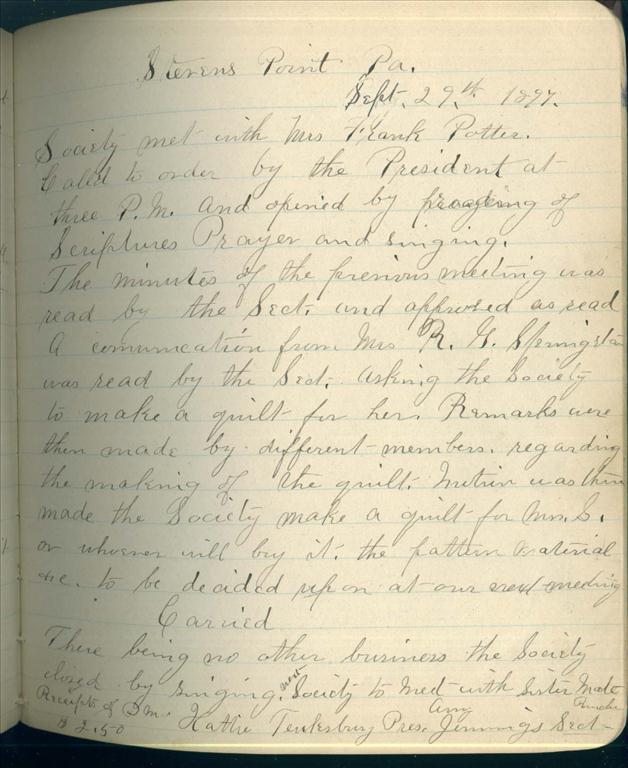 Stevens Point Pa.
Sept. 29th. 1897.
Society met with Mrs Frank Potter.
Called to order by the President at
three P.M. and opened by of
Scriptures Prayer and singing.
The minutes of the previous meeting was
read by the Sect. and approved as read
A comunication from Mrs R. G.
was read by the Sect. asking the Society
to make a quilt for her. Remarks were
then made by different members. regarding
the making of the quilt. Motion was then
made the Society make a quilt for Mrs. S.
or whoever will buy it. the pattern material
&c. to be decided upon at our next meeting
Carried
There being no other business the Society
closed by singing. next Society to Meet with Sister
Receipts of D.M. Hattie Tewksbury Pres. Amy Jennings Sect
$ 2.50